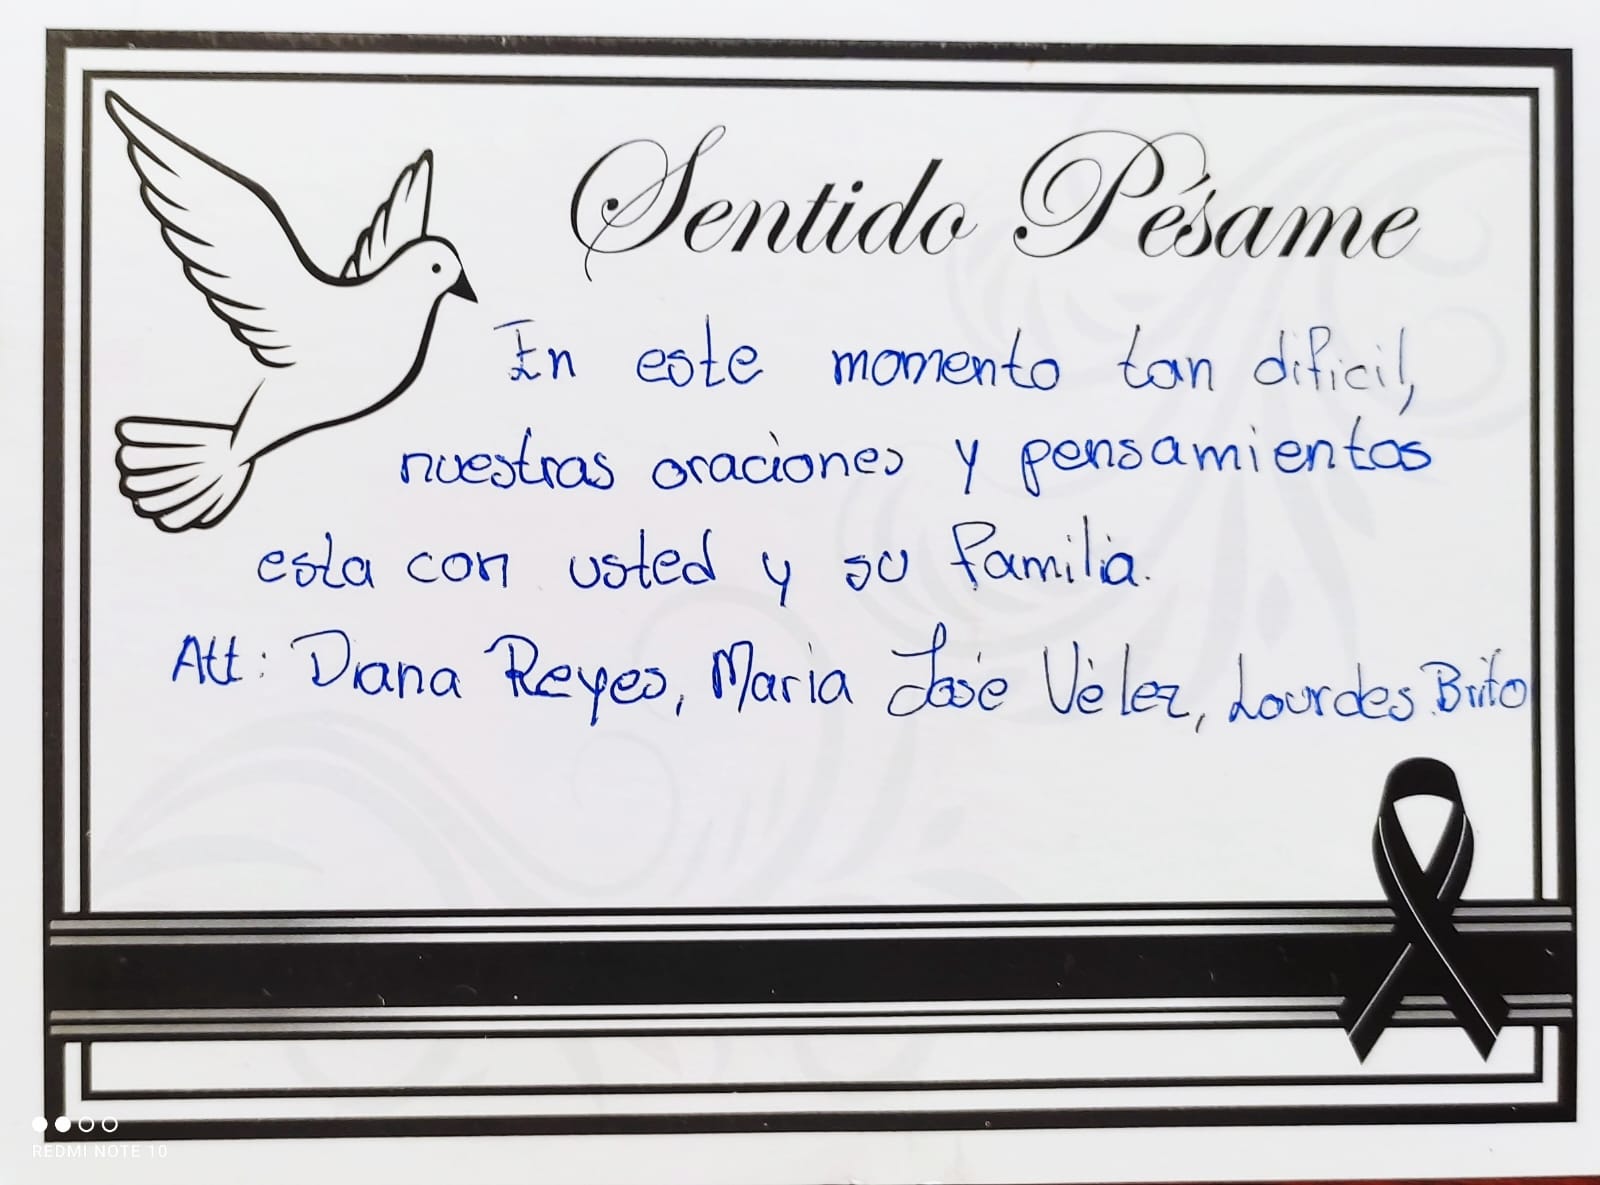 Sentido Pésame
En este momento tan dificil,
nuestras oraciones y pensamientos
esta con usted y su familia.
Att: Diana Reyes, Maria José Vèlez, Lourdes Brito
REDMI NOTE 10